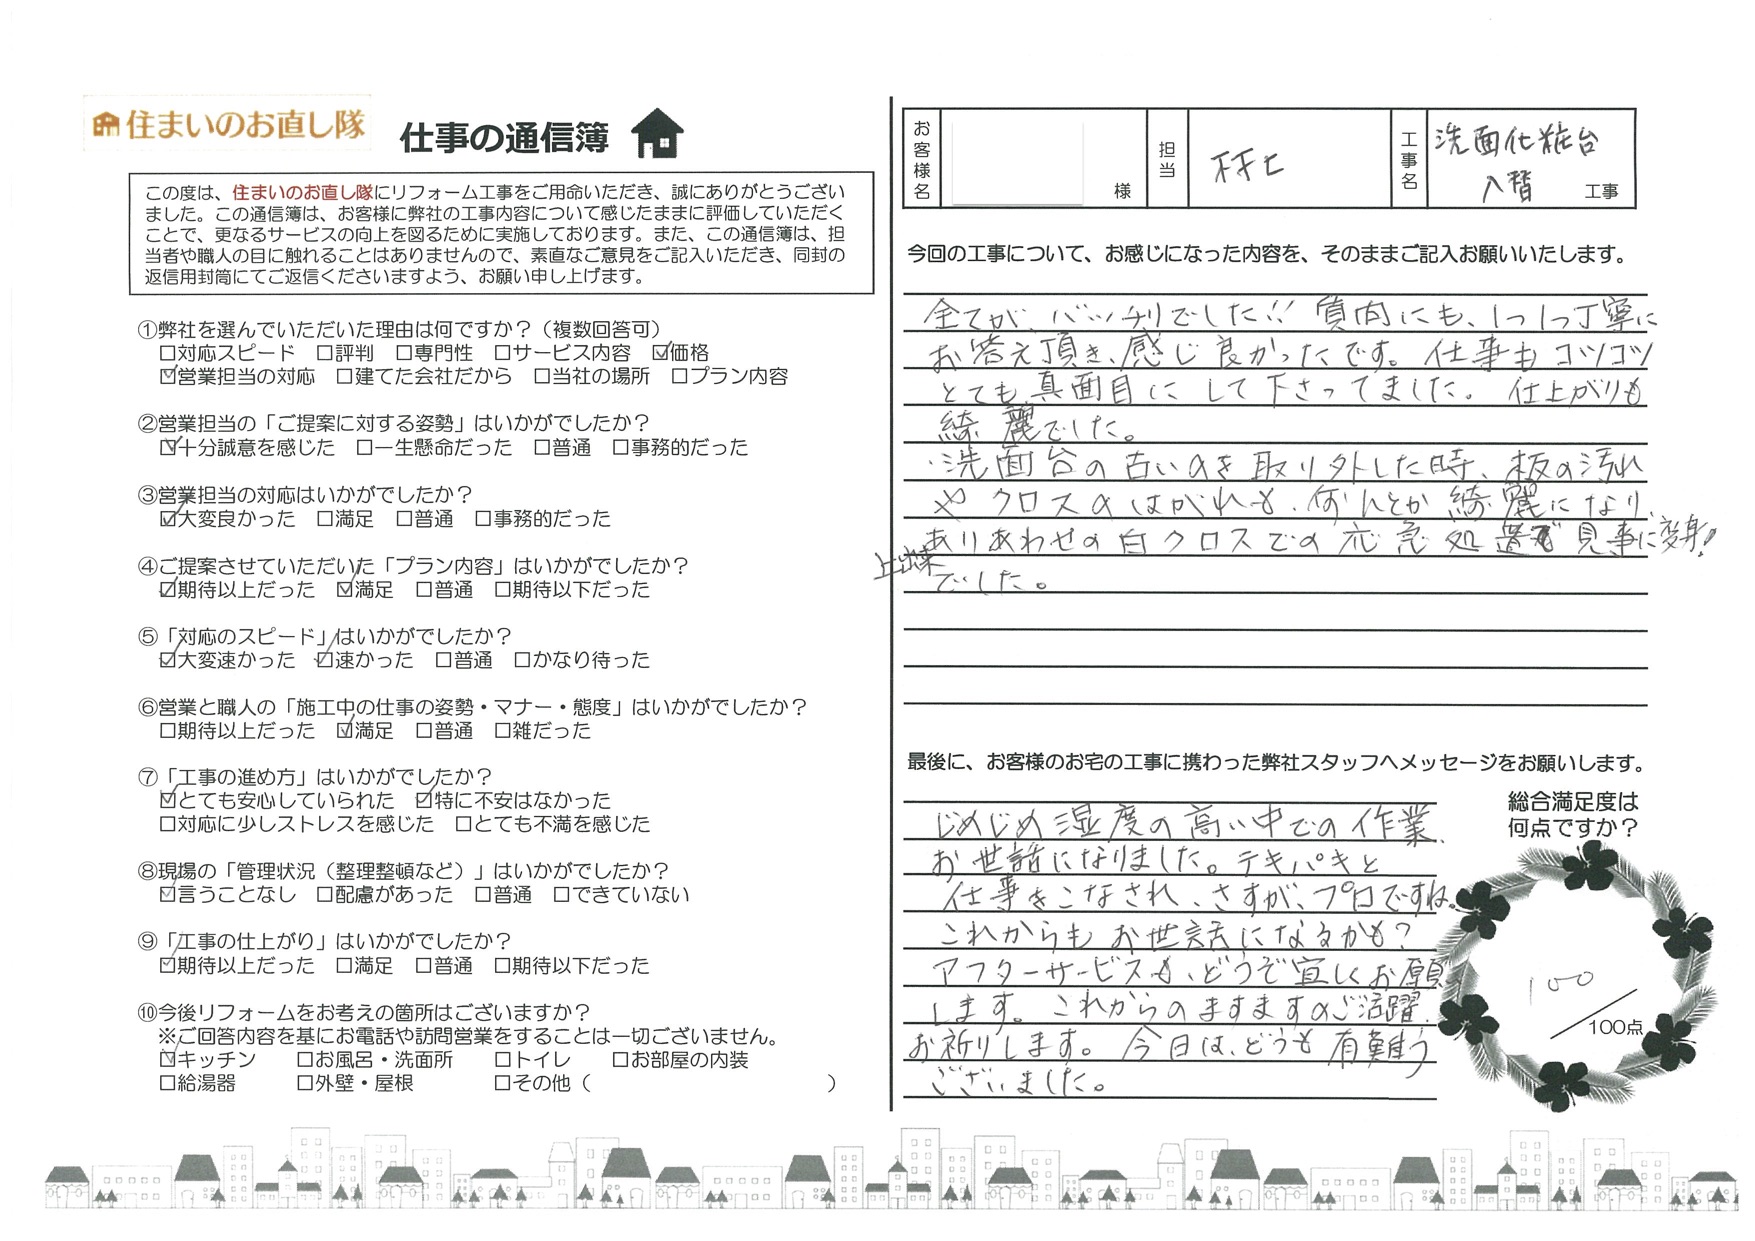 住まいのお直し隊
仕事の通信簿
この度は、住まいのお直し隊にリフォーム工事をご用命いただき、誠にありがとうござい
ました。この通信簿は、お客様に弊社の工事内容について感じたままに評価していただく
ことで、更なるサービスの向上を図るために実施しております。また、この通信簿は、担
当者や職人の目に触れることはありませんので、素直なご意見をご記入いただき、同封の
返信用封筒にてご返信くださいますよう、お願い申し上げます。
①弊社を選んでいただいた理由は何ですか？（複数回答可）
□対応スピード □評判 □専門性 □サービス内容 ☑価格
☑営業担当の対応 □建てた会社だから □当社の場所 □プラン内容
②営業担当の「ご提案に対する姿勢」はいかがでしたか？
☑十分誠意を感じた □一生懸命だった □普通 □事務的だった
③営業担当の対応はいかがでしたか？
☑大変良かった □満足 □普通 □事務的だった
④ご提案させていただいた「プラン内容」はいかがでしたか？
☑期待以上だった ☑満足 □普通 □期待以下だった
⑤「対応のスピード」はいかがでしたか？
☑大変速かった ☑速かった □普通 □かなり待った
⑥営業と職人の「施工中の仕事の姿勢・マナー・態度」はいかがでしたか？
□期待以上だった ☑満足 □普通 □雑だった
⑦「工事の進め方」はいかがでしたか？
☑とても安心していられた ☑特に不安はなかった
□対応に少しストレスを感じた □とても不満を感じた
⑧現場の「管理状況（整理整頓など）」はいかがでしたか？
☑言うことなし □配慮があった □普通 □できていない
⑨「工事の仕上がり」はいかがでしたか？
☑期待以上だった □満足 □普通 □期待以下だった
⑩今後リフォームをお考えの箇所はございますか？
※ご回答内容を基にお電話や訪問営業をすることは一切ございません。
☑キッチン □お風呂・洗面所 □トイレ □お部屋の内装
□給湯器 □外壁・屋根 □その他（ ）
お客様名 様 担当 工事名 洗面化粧台
入替 工事
今回の工事について、お感じになった内容を、そのままご記入お願いいたします。
全てが、バッチリでした!! 質問にも、1つ1つ丁寧に
お答え頂き、感じ良かったです。仕事もコツコツ
とても真面目にして下さってました。仕上がりも
綺麗でした。
・洗面台の古いのを取り外した時、板の汚れ
やクロスのはがれも、何んとか綺麗になり、
ありあわせの白クロスでの応急処置で見事に変身!
上出来でした。
最後に、お客様のお宅の工事に携わった弊社スタッフへメッセージをお願いします。
じめじめ湿度の高い中での作業、
お世話になりました。テキパキと
仕事をこなされ、さすが、プロですね。
これからもお世話になるかも?
アフターサービスも、どうぞ宜しくお願い
します。これからのますますのご活躍、
お祈りします。今日は、どうも有難う
ございました。
総合満足度は
何点ですか？
100
／100点